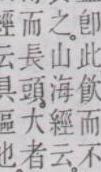 即此飲而不
之。山海經云。
而長頭。大者
經云具區也。